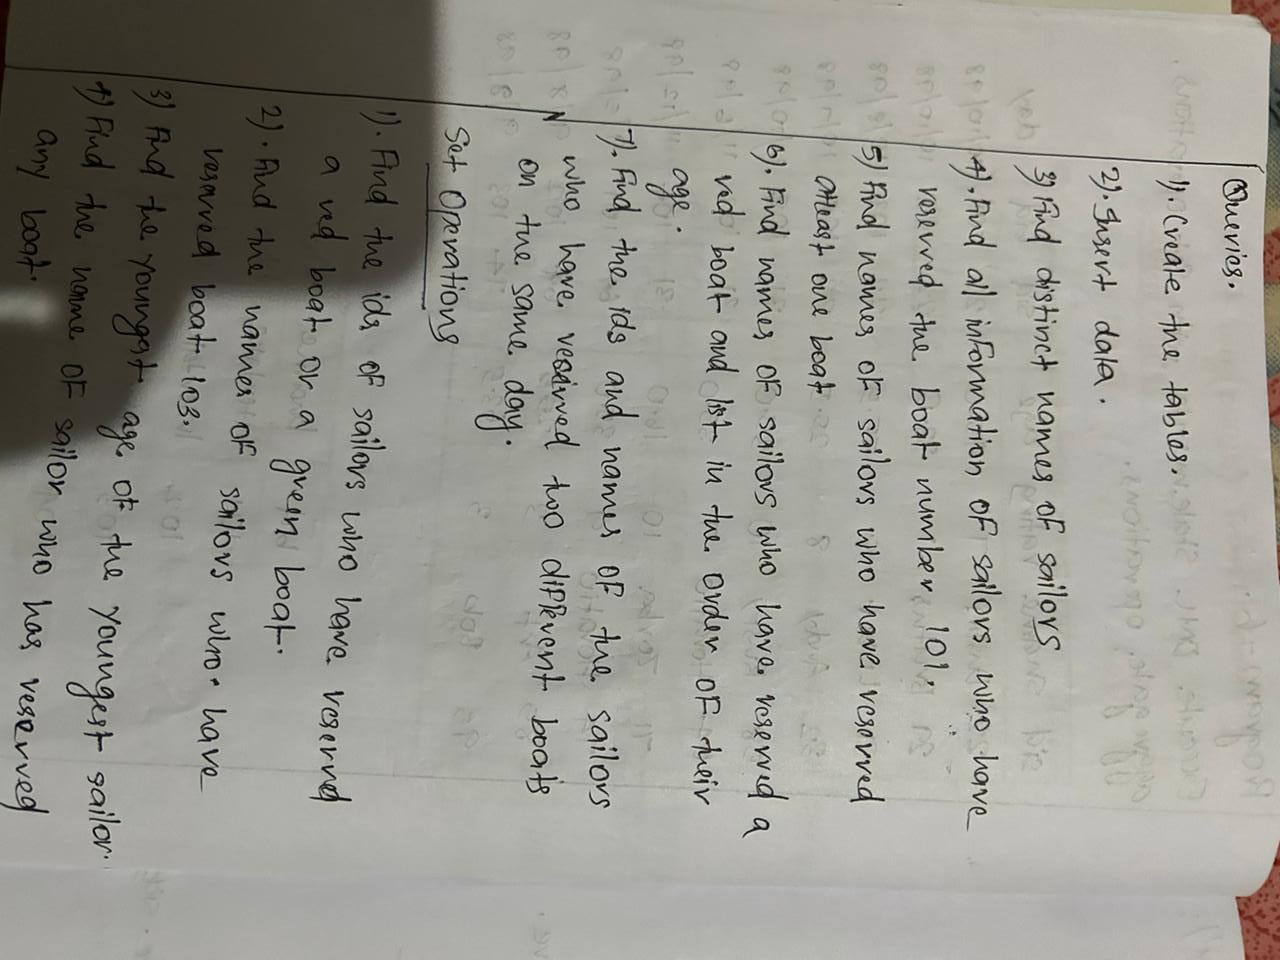 Queries.
1). Create the tables.
2). Insert data.
3) Find distinct names of sailors
4). Find all information of sailors who have
reserved the boat number 101.
5) Find names of sailors who have reserved
atleast one boat.
6). Find names of sailors who have reserved a
red boat and list in the order of their
age.
7). Find the ids and names of the sailors
who have reserved two different boats
on the same day.
Set Operations
1). Find the ids of sailors who have reserved
a red boat or a green boat.
2). Find the names of sailors who have
reserved boat 103.
3) Find the youngest age of the youngest sailor.
4) Find the name of sailor who has reserved
any boat.